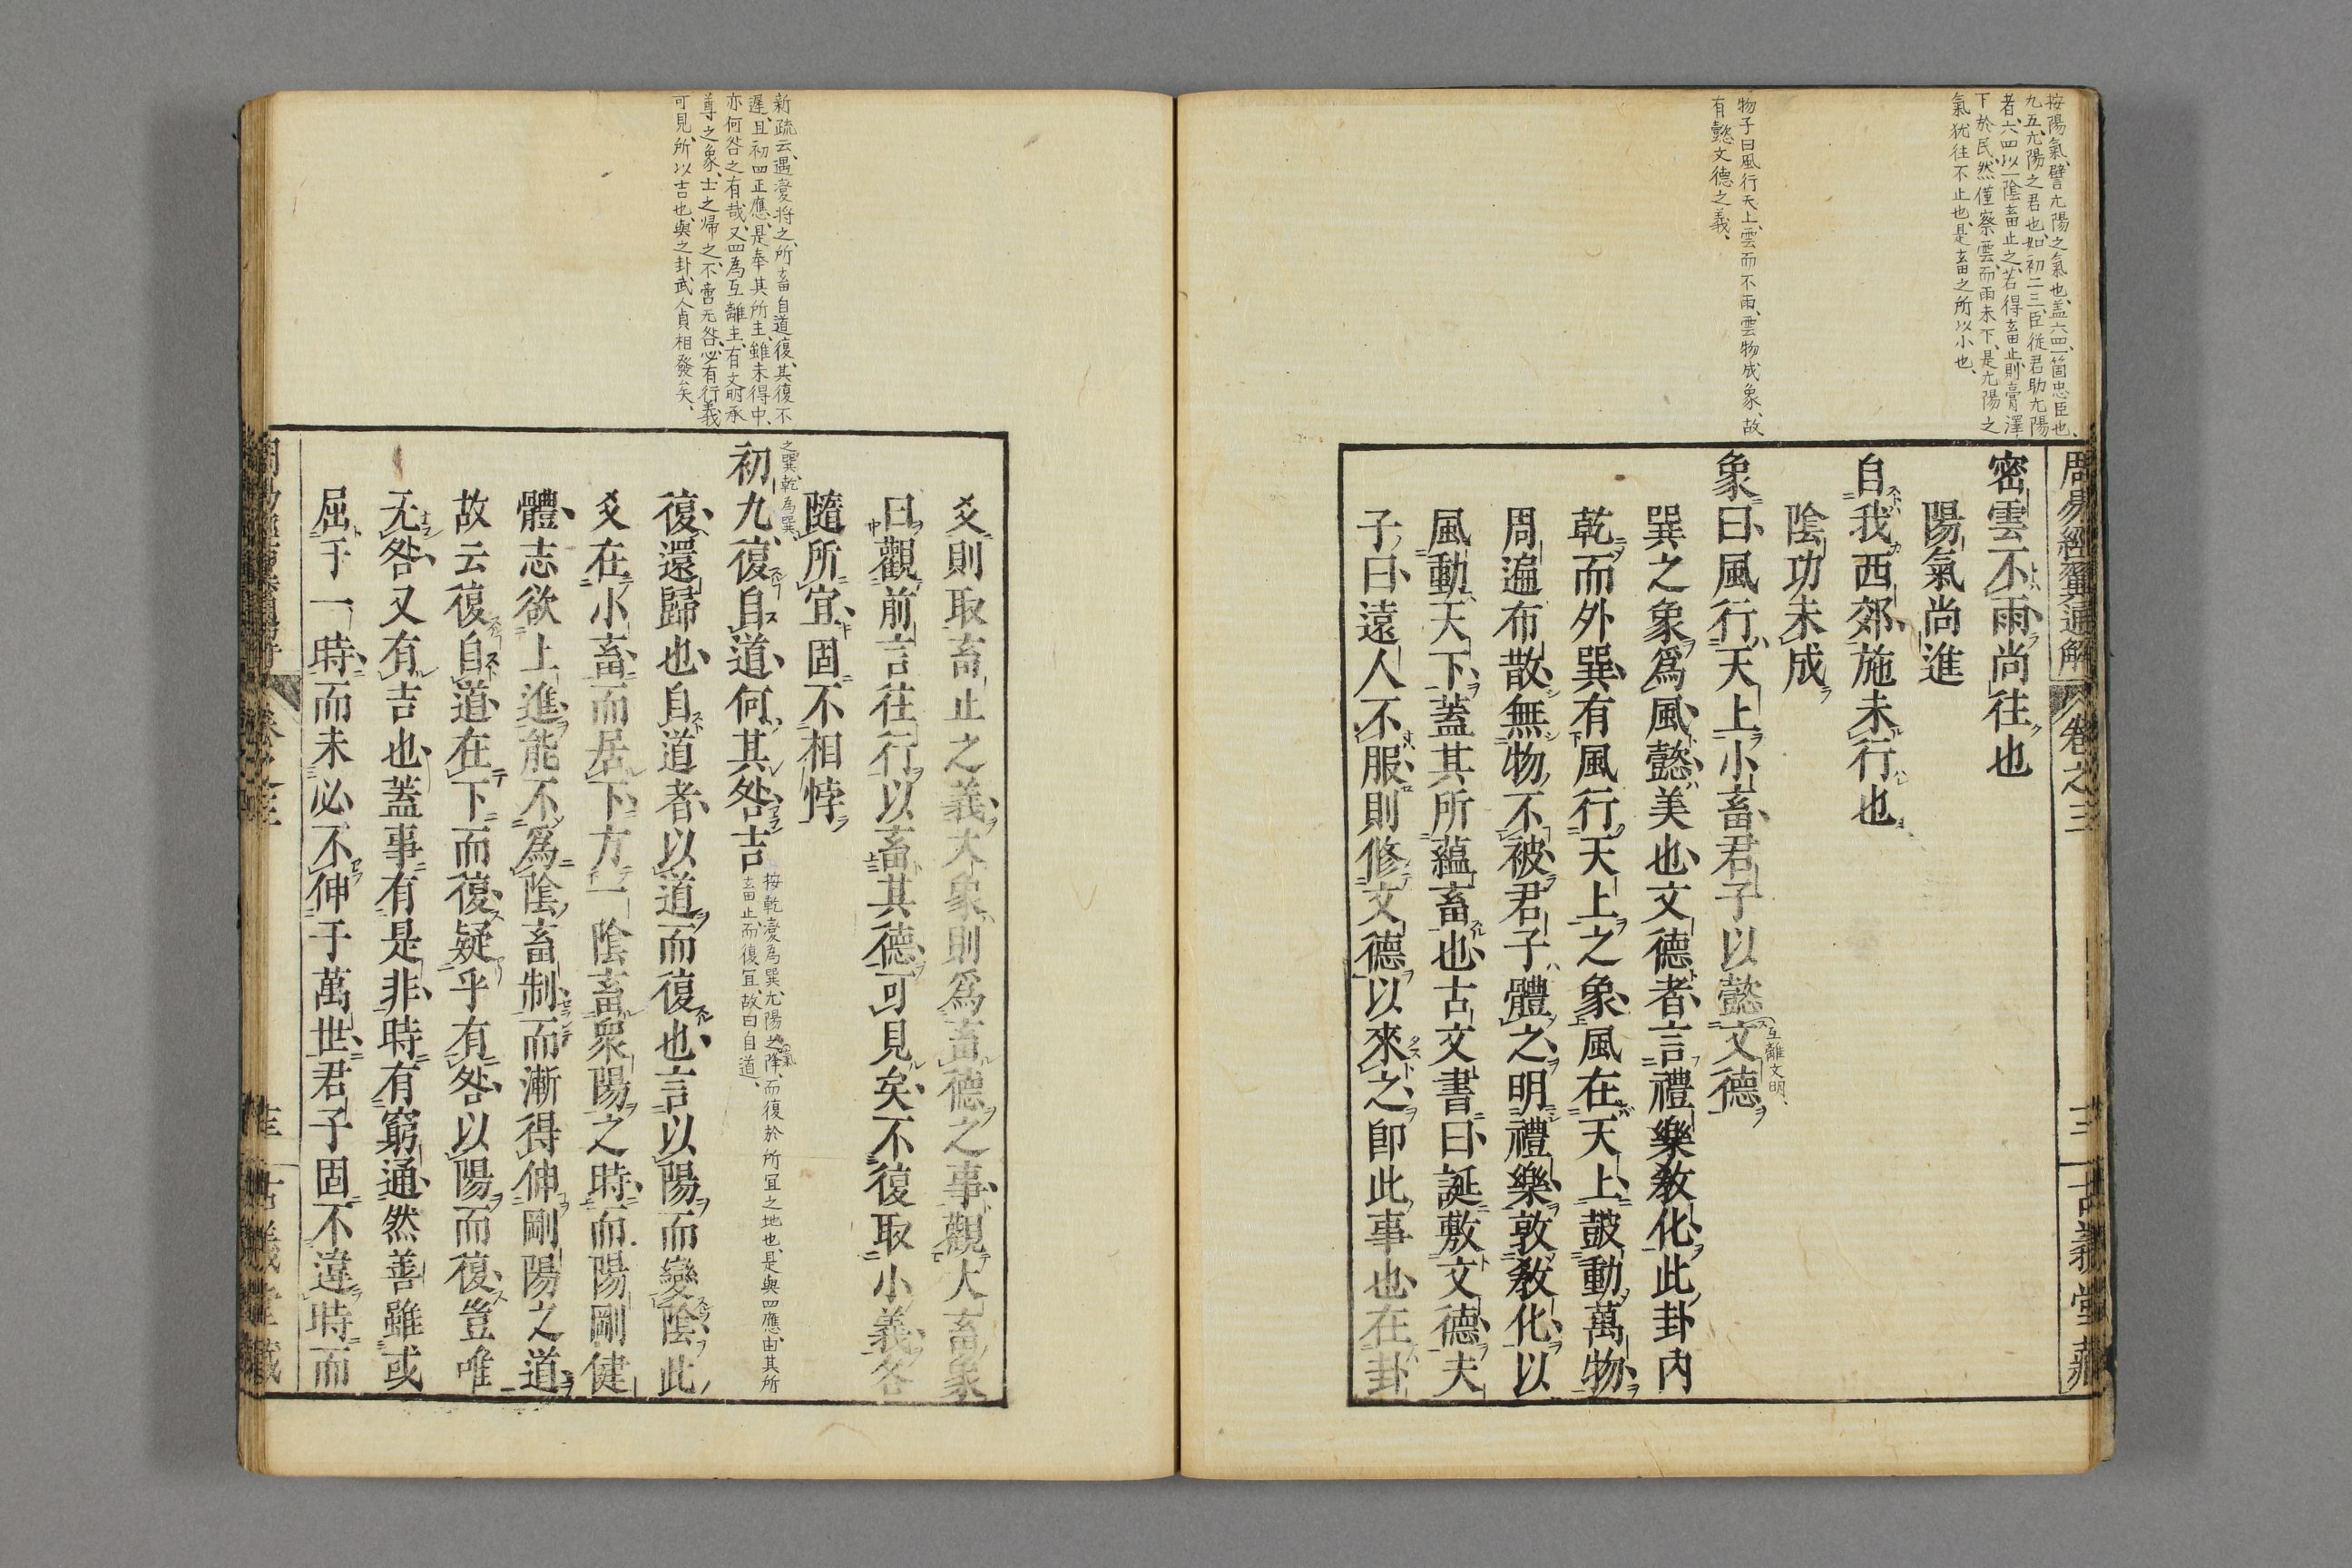 按陽氣、譬亢陽之氣也、盖六四、一箇忠臣也、
九五、亢陽之君也、如初二三、臣從君助亢陽
者、六四以一陰畜止之、若得畜止、則膏澤
下於民、然僅察雲、而雨未下、是亢陽之
氣、犹往不止也、是畜之所以小也、
物子曰風行天上、雲而不雨、雲物成象、故
有懿文德之義、
周易經翼通解
卷之三
三
古義堂藏
密雲不雨尚往也
陽氣尚進
自我西郊施未行也
陰功未成
象曰風行天上小畜君子以懿文德
互離文明、
巽之象爲風懿美也文德者言禮樂敎化此卦內
乾而外巽有風行天上之象風在天上皷動萬物
周遍布散無物不被君子體之明禮樂敦敎化以
風動天下蓋其所蘊畜也古文書曰誕敷文德夫
子曰遠人不服則脩文德以來之卽此事也在卦
新疏云、遇㪅将之、所畜自道復、其復不
遲、且初四正應、是奉其所主、雖未得中、
亦何咎之有哉、又四為互離主、有文明承
尊之象、士之帰之、不啻无咎、必有行義
可見、所以吉也、與之卦、武人貞相發矣、
爻則取畜止之義大象則爲畜德之事觀大畜象
曰觀前言往行以畜其德可見矣不復取小義各
隨所宜固不相悖
之巽、乾為巽、
初九復自道何其咎吉
按乾㪅為巽、亢陽之氣降、而復於所冝之地也、是與四應、由其所
畜止、而復冝、故曰自道、
復還歸也自道者以道而復也言以陽而變陰此
爻在小畜而居下方一陰畜衆陽之時而陽剛健
體志欲上進能不爲陰畜制而漸得伸剛陽之道
故云復自道在下而復疑乎有咎以陽而復豈唯
无咎又有吉也蓋事有是非時有窮通然善雖或
屈于一時而未必不伸于萬世君子固不違時而
卷之三
古義堂藏